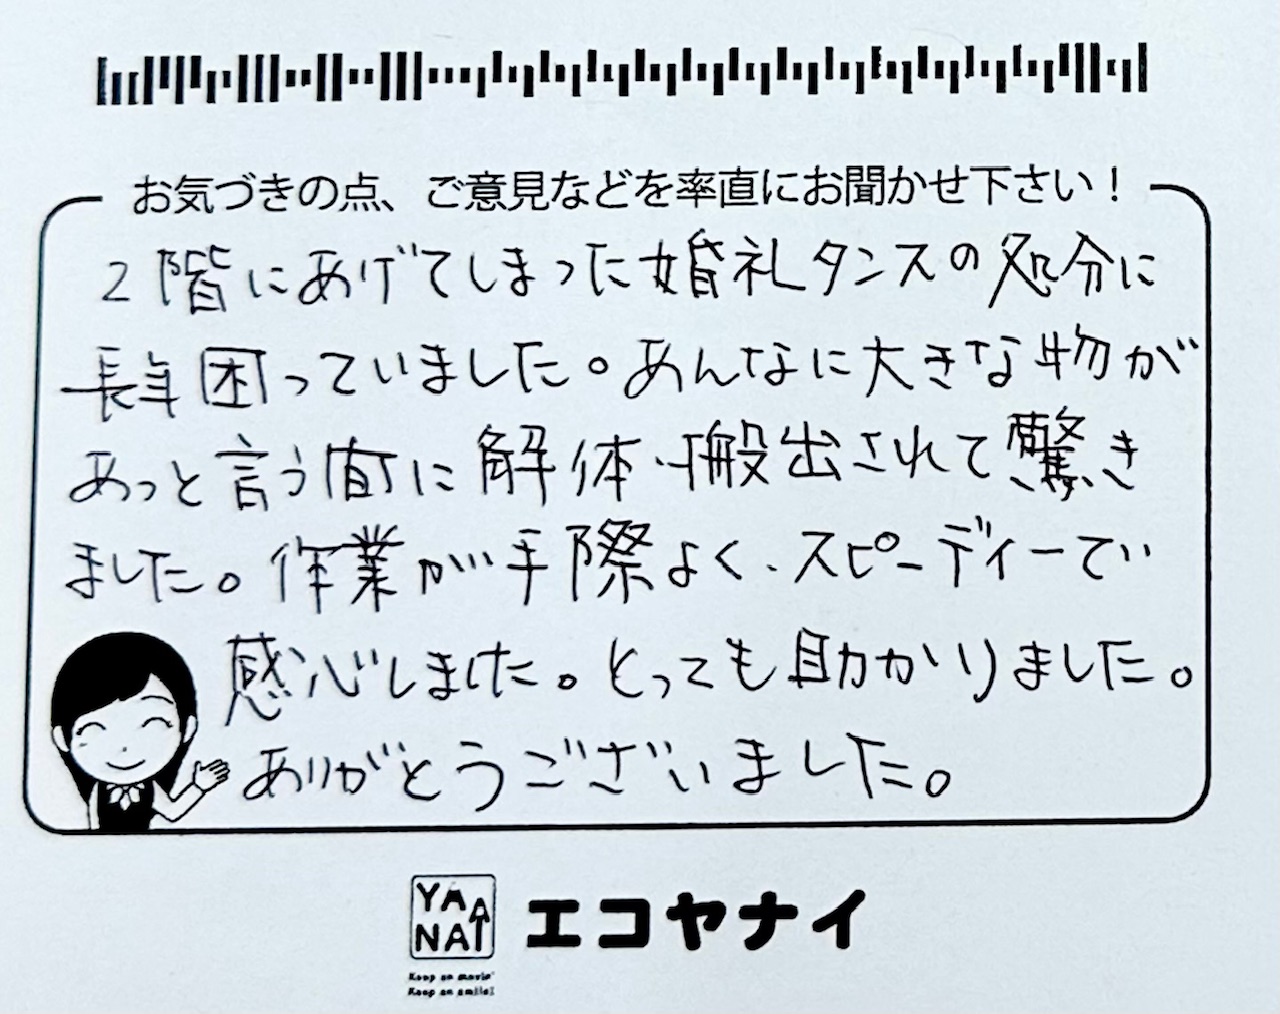 お気づきの点、ご意見などを率直にお聞かせ下さい！
2階にあげてしまった婚礼タンスの処分に
長年困っていました。あんなに大きな物が
あっと言う間に解体・搬出されて驚き
ました。作業が手際よく、スピーディーで
感心しました。とっても助かりました。
ありがとうございました。
YANAI
エコヤナイ
Keep on movin'
Keep on smile!